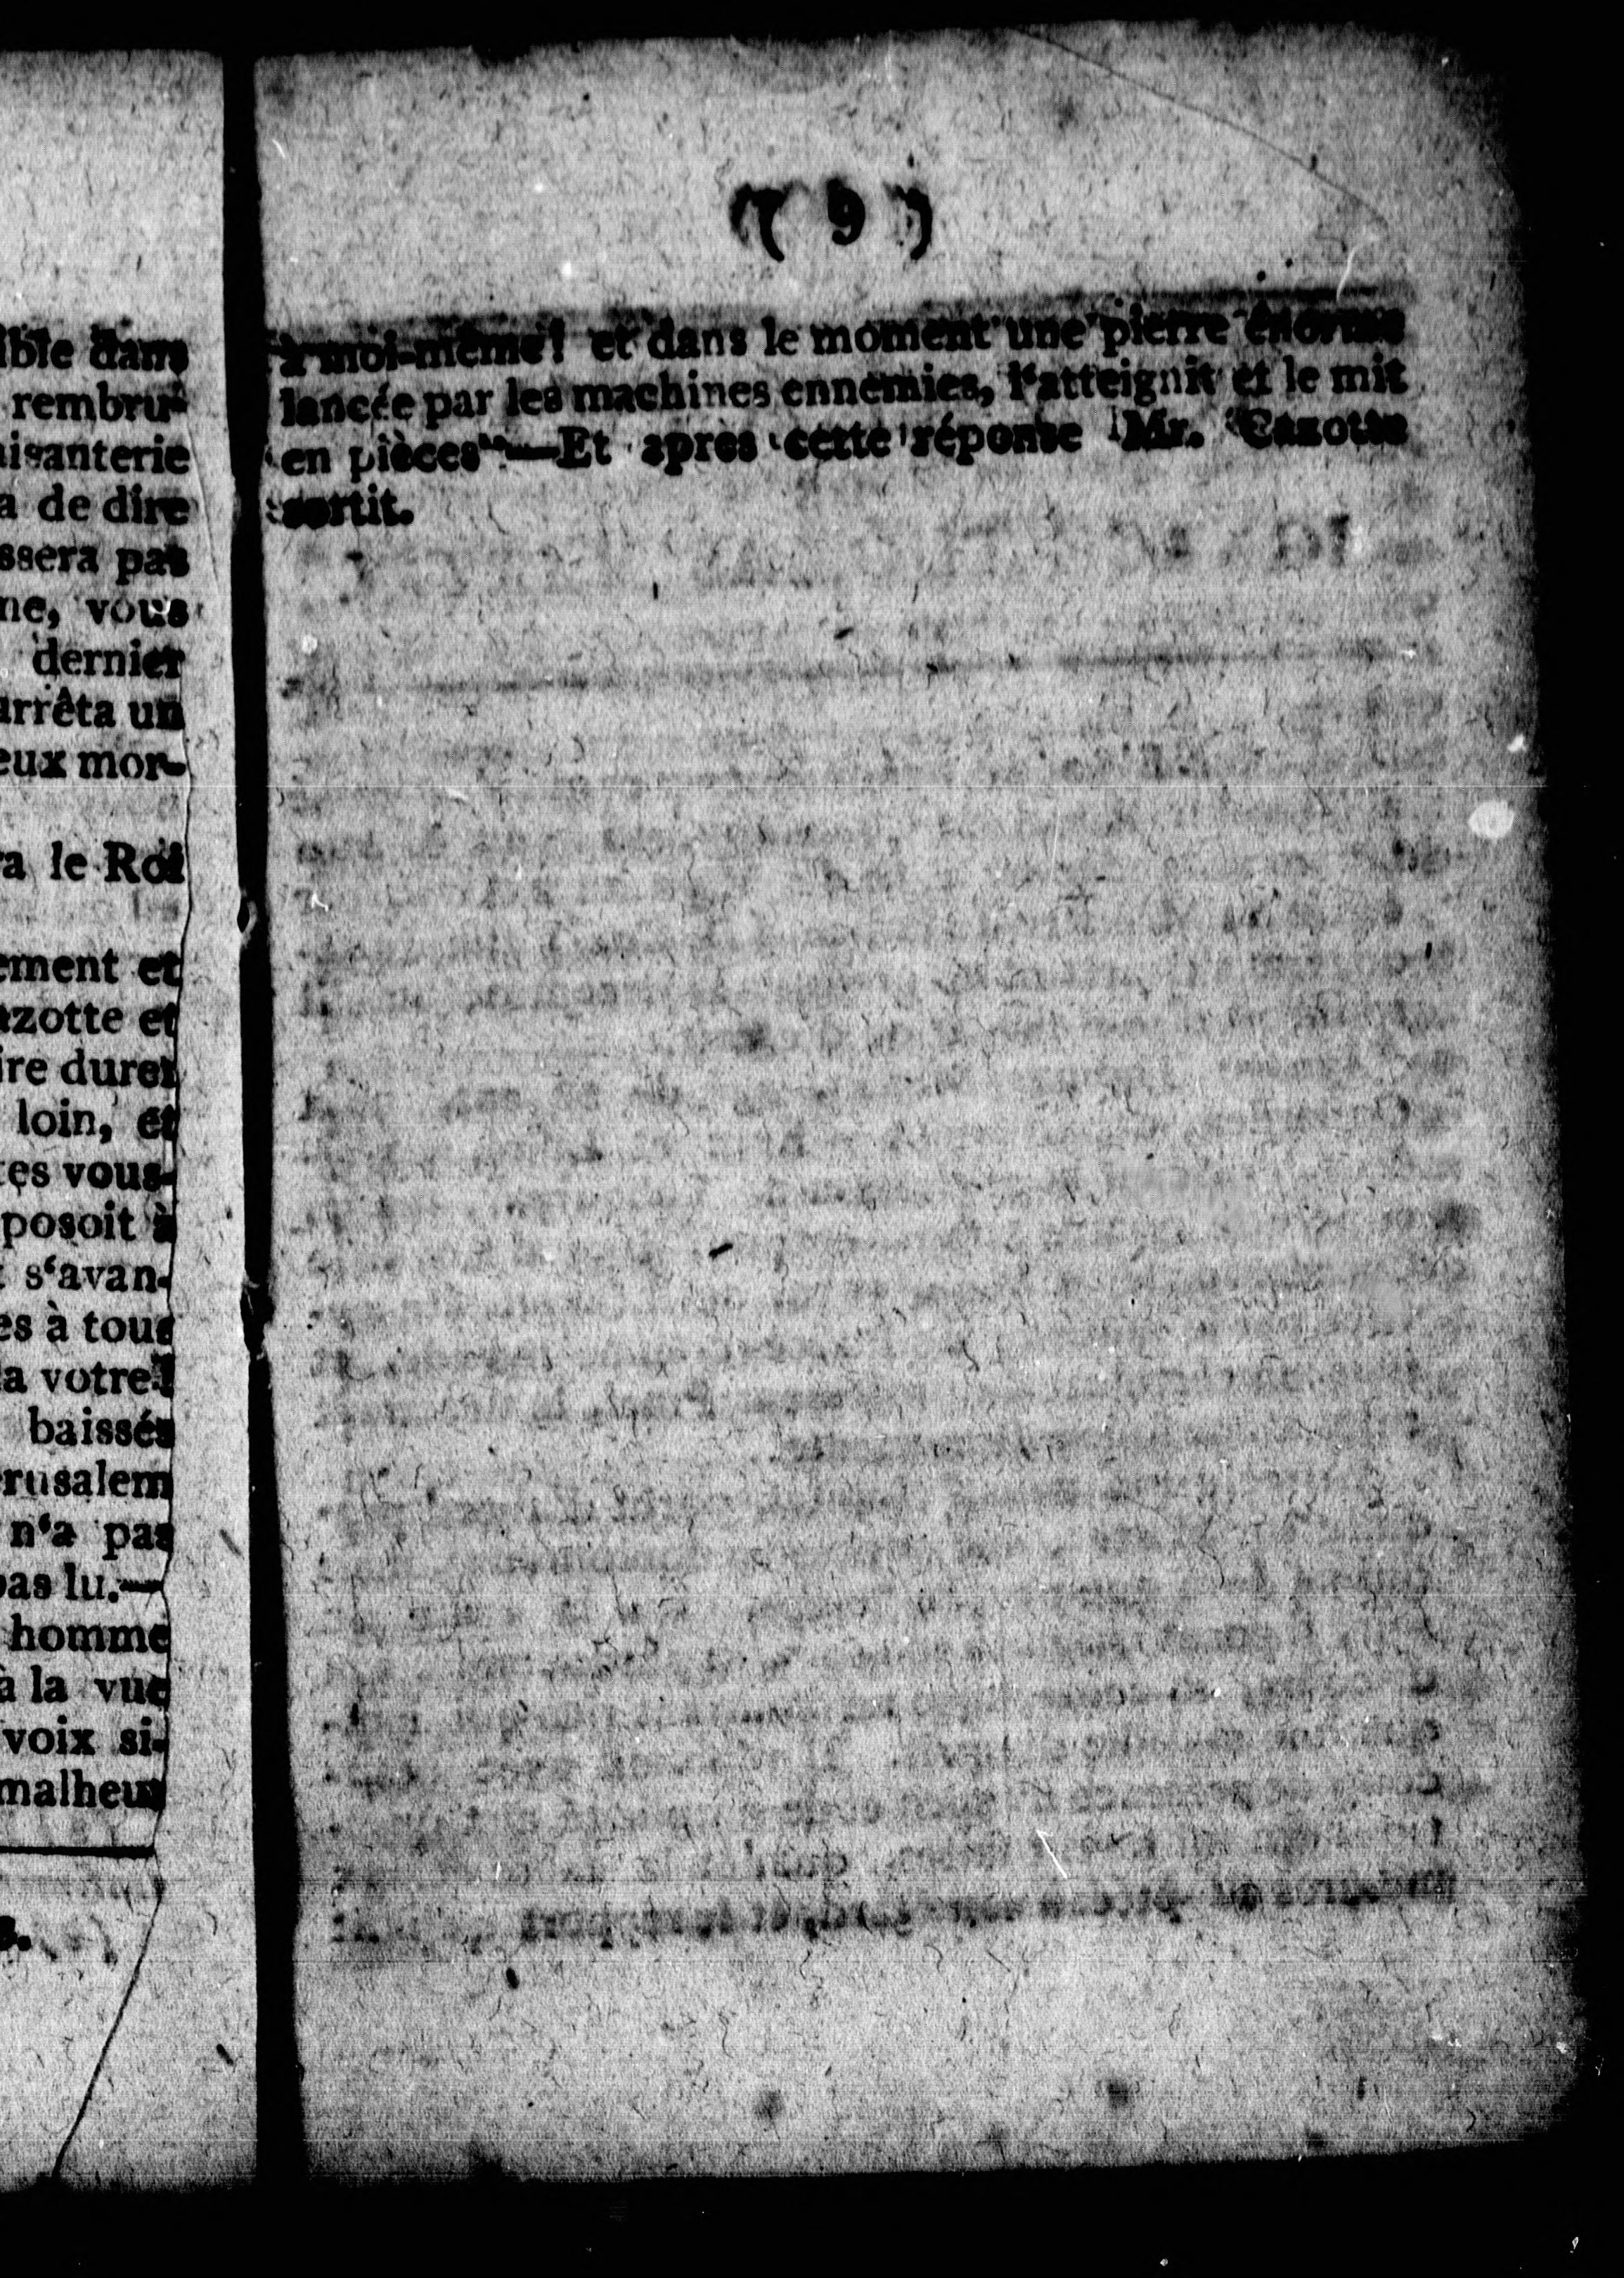 ible dans
rembru-
aisanterie
a de dire
ssera pas
ne, vous
dernier
arrêta un
eux mor-
ra le Roi
ement et
azotte et
ire durer
loin, et
tes vous-
posoit à
t s‘avan-
es à tous
la votre?
baissés
erusalem
n‘a pas
pas lu.—
homme
à la vue
voix si-
malheur
s.
( 9 )
à moi-même! et dans le moment une pierre énorme
lancée par les machines ennemies, l‘atteignit et le mit
en pièces“.—Et après cette réponse Mr. Cazotte
sortit.